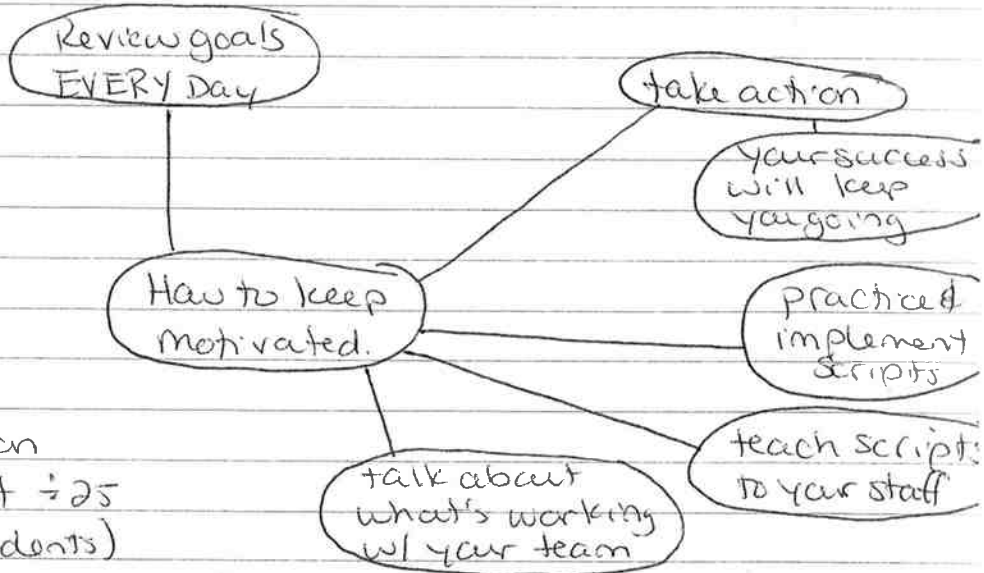 Review goals
EVERY Day
take action
your success
will keep
you going
How to keep
motivated.
practice &
implement
scripts
teach scripts
to your staff
talk about
what's working
w/ your team
÷25